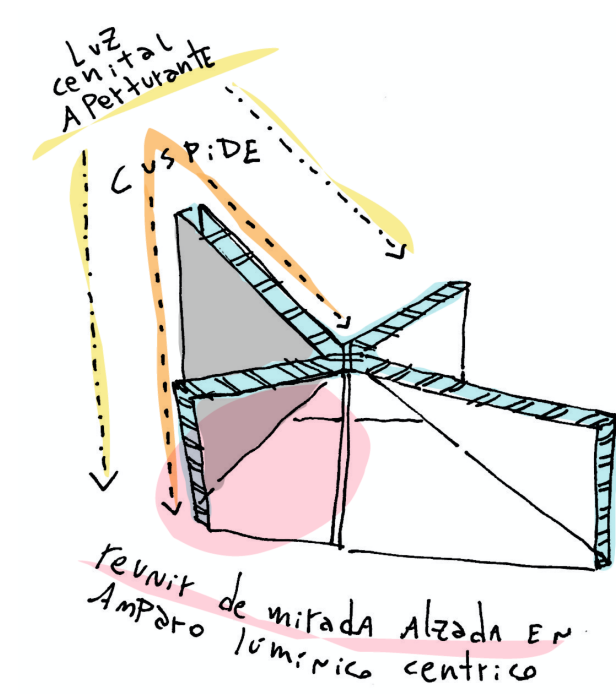 LUZ
cenital
APerturantE
CUSPiDE
reunir de miradA Alzada EN
AmParo lumínico centrico